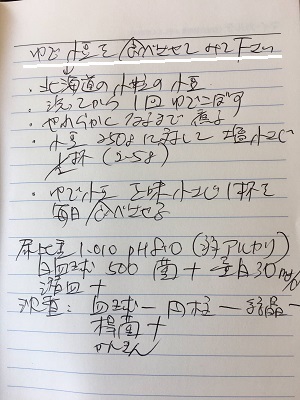 ゆで小豆を食べさせてみて下さい
・北海道の小粒の小豆
・洗ってから1回ゆでこぼす
・やわらかくなるまで煮る
・小豆250gに対して 塩小さじ
1/2杯(2.5g)
・ゆで小豆 正味小さじ1杯を
毎日食べさせる
尿比重1.010 pH8.0 (強アルカリ)
白血球 500 菌+ 蛋白30mg/
潜血+
沈査: 血球- 円柱- 結晶-
桿菌+